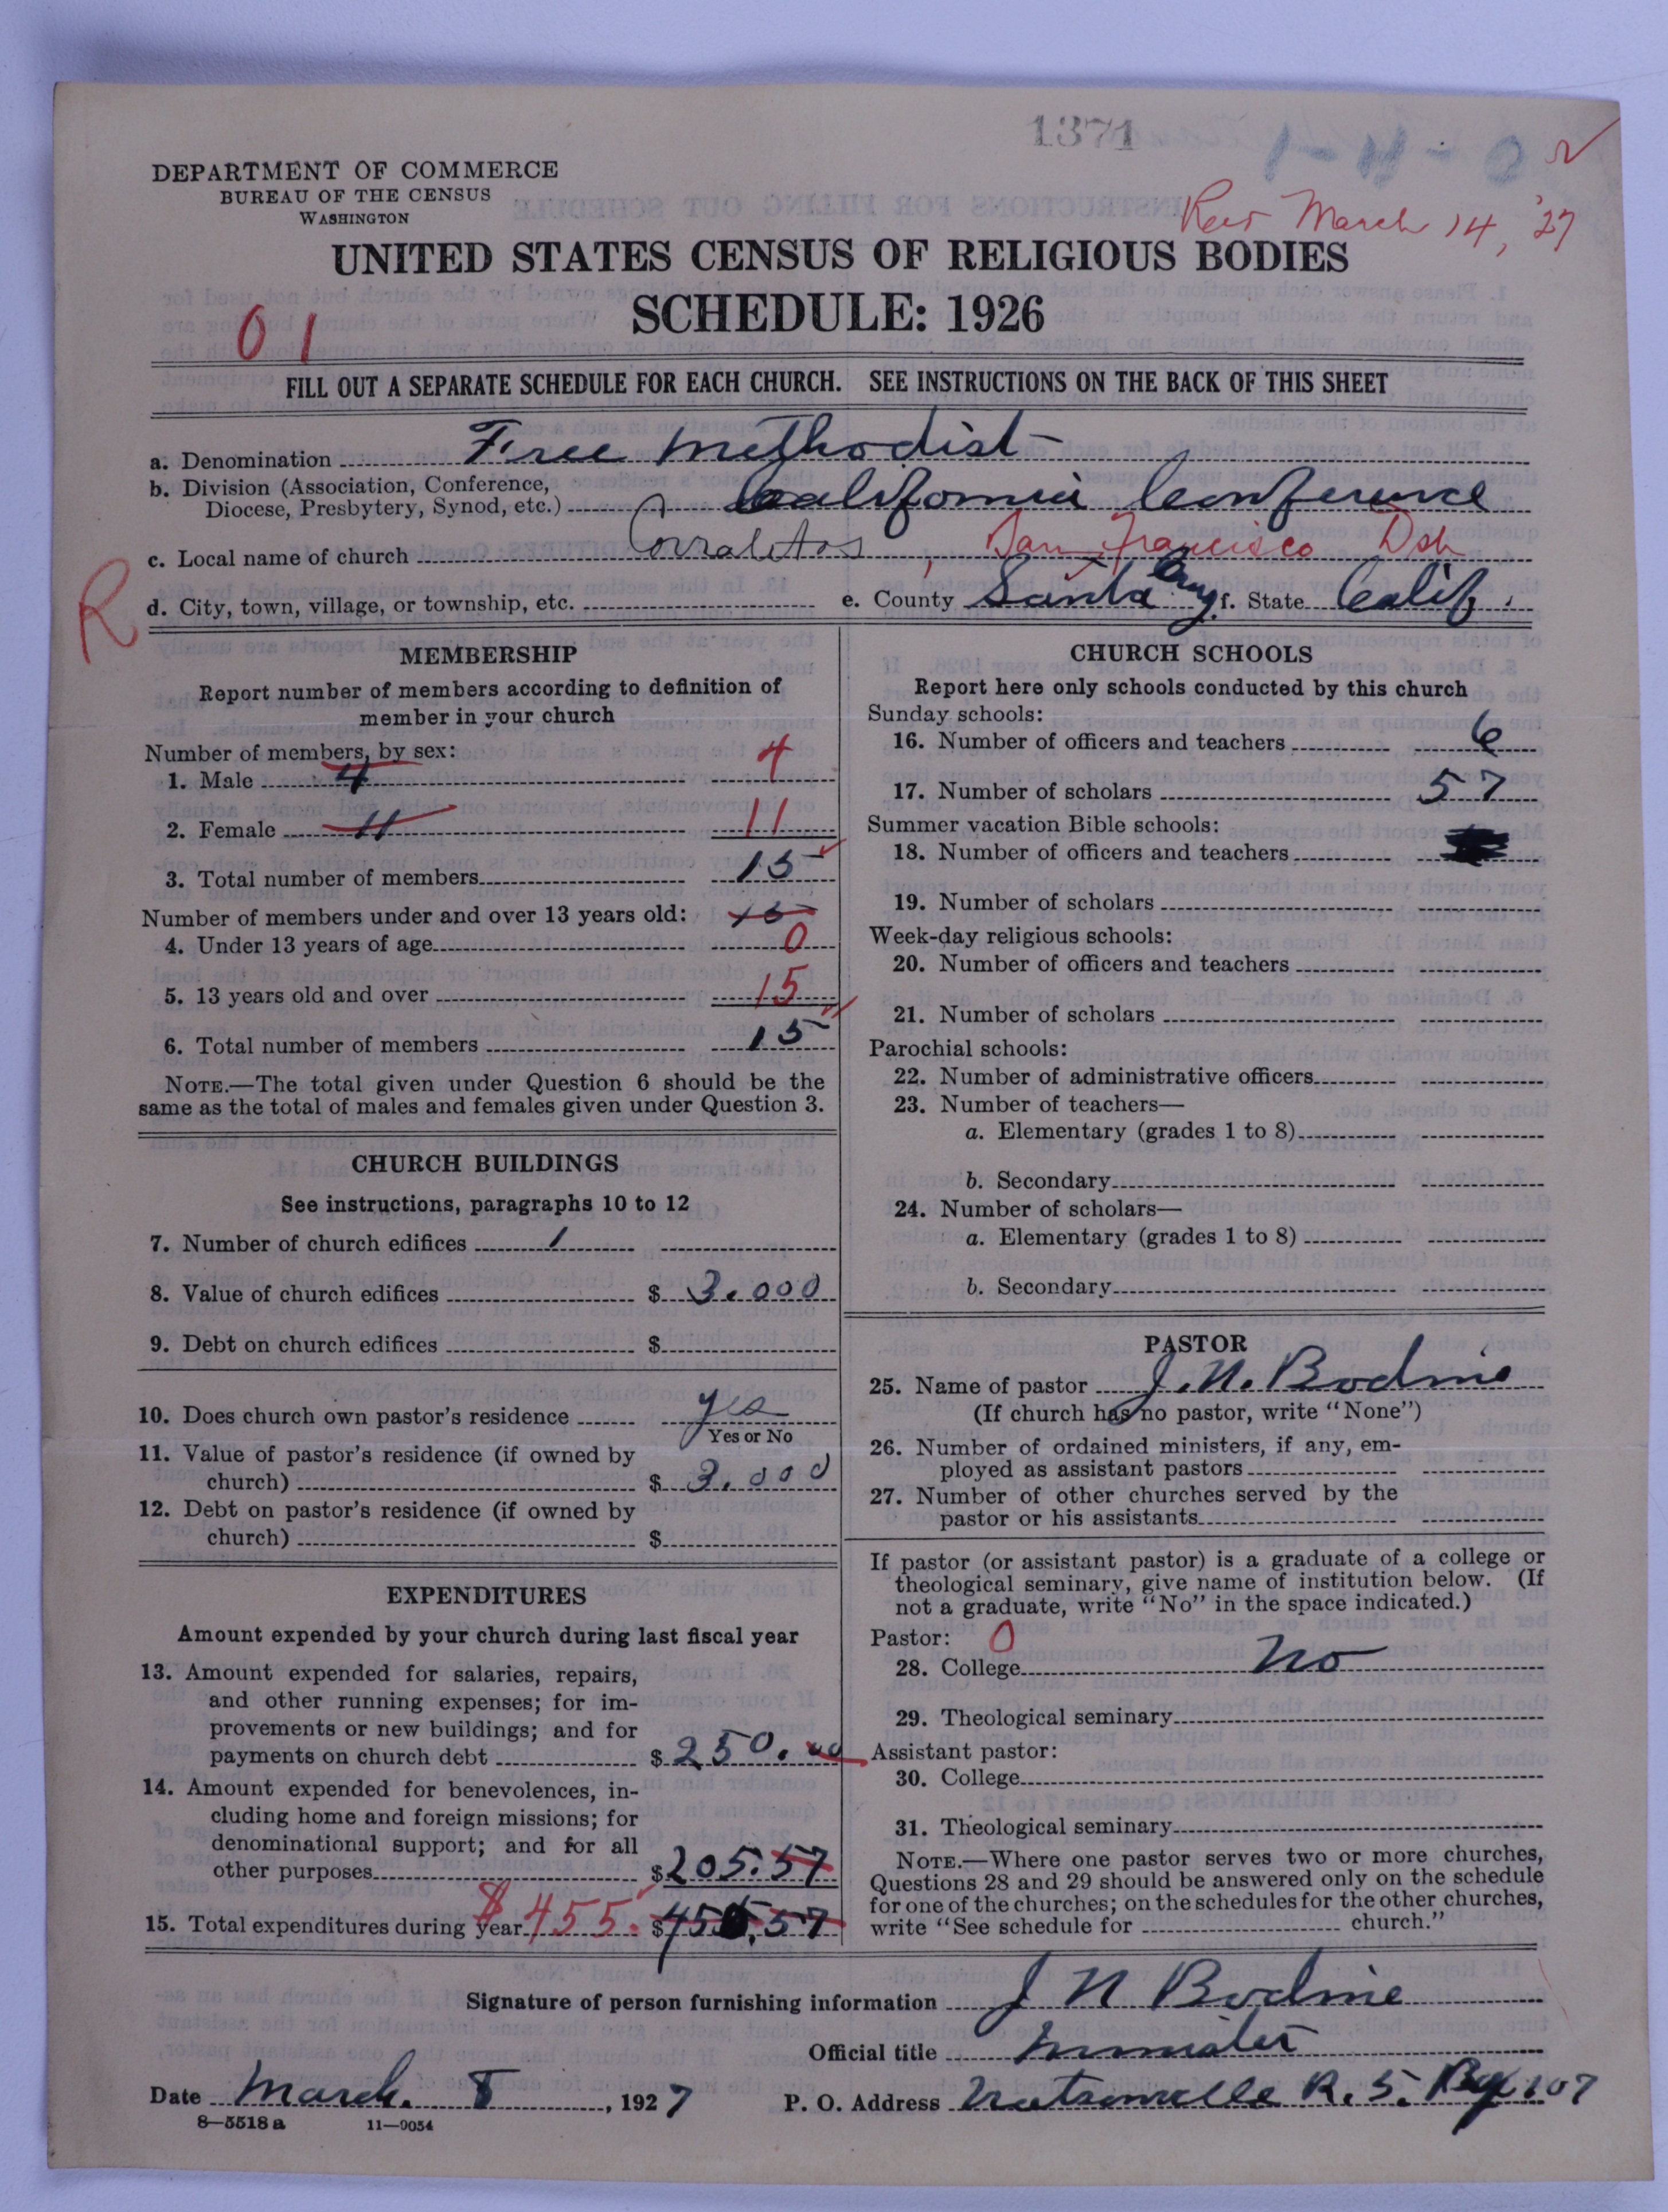 1371
DEPARTMENT OF COMMERCE
BUREAU OF THE CENSUS
WASHINGTON
Rec March 14, '27
UNITED STATES CENSUS OF RELIGIOUS BODIES
SCHEDULE: 1926
01
FILL OUT A SEPARATE SCHEDULE FOR EACH CHURCH. SEE INSTRUCTIONS ON THE BACK OF THIS SHEET
a. Denomination Free Methodist
b. Division (Association, Conference,
Diocese, Presbytery, Synod, etc.) California Conference
c. Local name of church Corralitos, San Francisco Dst
R
d. City, town, village, or township, etc. e. County Santa Cruz f. State Calif.
MEMBERSHIP
Report number of members according to definition of
member in your church
Number of members, by sex:
1. Male 4 4
2. Female 11 11
3. Total number of members 15
Number of members under and over 13 years old: 15
4. Under 13 years of age 0
5. 13 years old and over 15
6. Total number of members 15
NOTE.—The total given under Question 6 should be the
same as the total of males and females given under Question 3.
CHURCH BUILDINGS
See instructions, paragraphs 10 to 12
7. Number of church edifices 1
8. Value of church edifices $ 3.000
9. Debt on church edifices $
10. Does church own pastor's residence yes
Yes or No
11. Value of pastor's residence (if owned by
church) $ 3.000
12. Debt on pastor's residence (if owned by
church) $
EXPENDITURES
Amount expended by your church during last fiscal year
13. Amount expended for salaries, repairs,
and other running expenses; for im-
provements or new buildings; and for
payments on church debt $ 250.00
14. Amount expended for benevolences, in-
cluding home and foreign missions; for
denominational support; and for all
other purposes $ 205.57
15. Total expenditures during year $455. $455.57
CHURCH SCHOOLS
Report here only schools conducted by this church
Sunday schools:
16. Number of officers and teachers 6
17. Number of scholars 57
Summer vacation Bible schools:
18. Number of officers and teachers
19. Number of scholars
Week-day religious schools:
20. Number of officers and teachers
21. Number of scholars
Parochial schools:
22. Number of administrative officers
23. Number of teachers—
a. Elementary (grades 1 to 8)
b. Secondary
24. Number of scholars—
a. Elementary (grades 1 to 8)
b. Secondary
PASTOR
25. Name of pastor J. N. Bodine
(If church has no pastor, write "None")
26. Number of ordained ministers, if any, em-
ployed as assistant pastors
27. Number of other churches served by the
pastor or his assistants
If pastor (or assistant pastor) is a graduate of a college or
theological seminary, give name of institution below. (If
not a graduate, write "No" in the space indicated.)
Pastor: 0
28. College No
29. Theological seminary
Assistant pastor:
30. College
31. Theological seminary
NOTE.—Where one pastor serves two or more churches,
Questions 28 and 29 should be answered only on the schedule
for one of the churches; on the schedules for the other churches,
write "See schedule for church."
Signature of person furnishing information J N Bodine
Official title Minister
Date March. 8, 1927 P. O. Address Watsonville R. 5. Bx 107
8—5518 a 11—9054